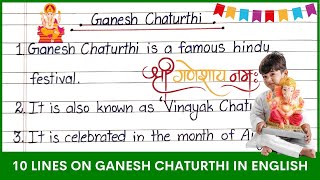 Ganesh Chaturthi
1. Ganesh Chaturthi is a famous hindu
festival.
श्री गणेशाय नमः
2. It is also known as 'Vinayak
3. It is celebrated in the month of
10 LINES ON GANESH CHATURTHI IN ENGLISH